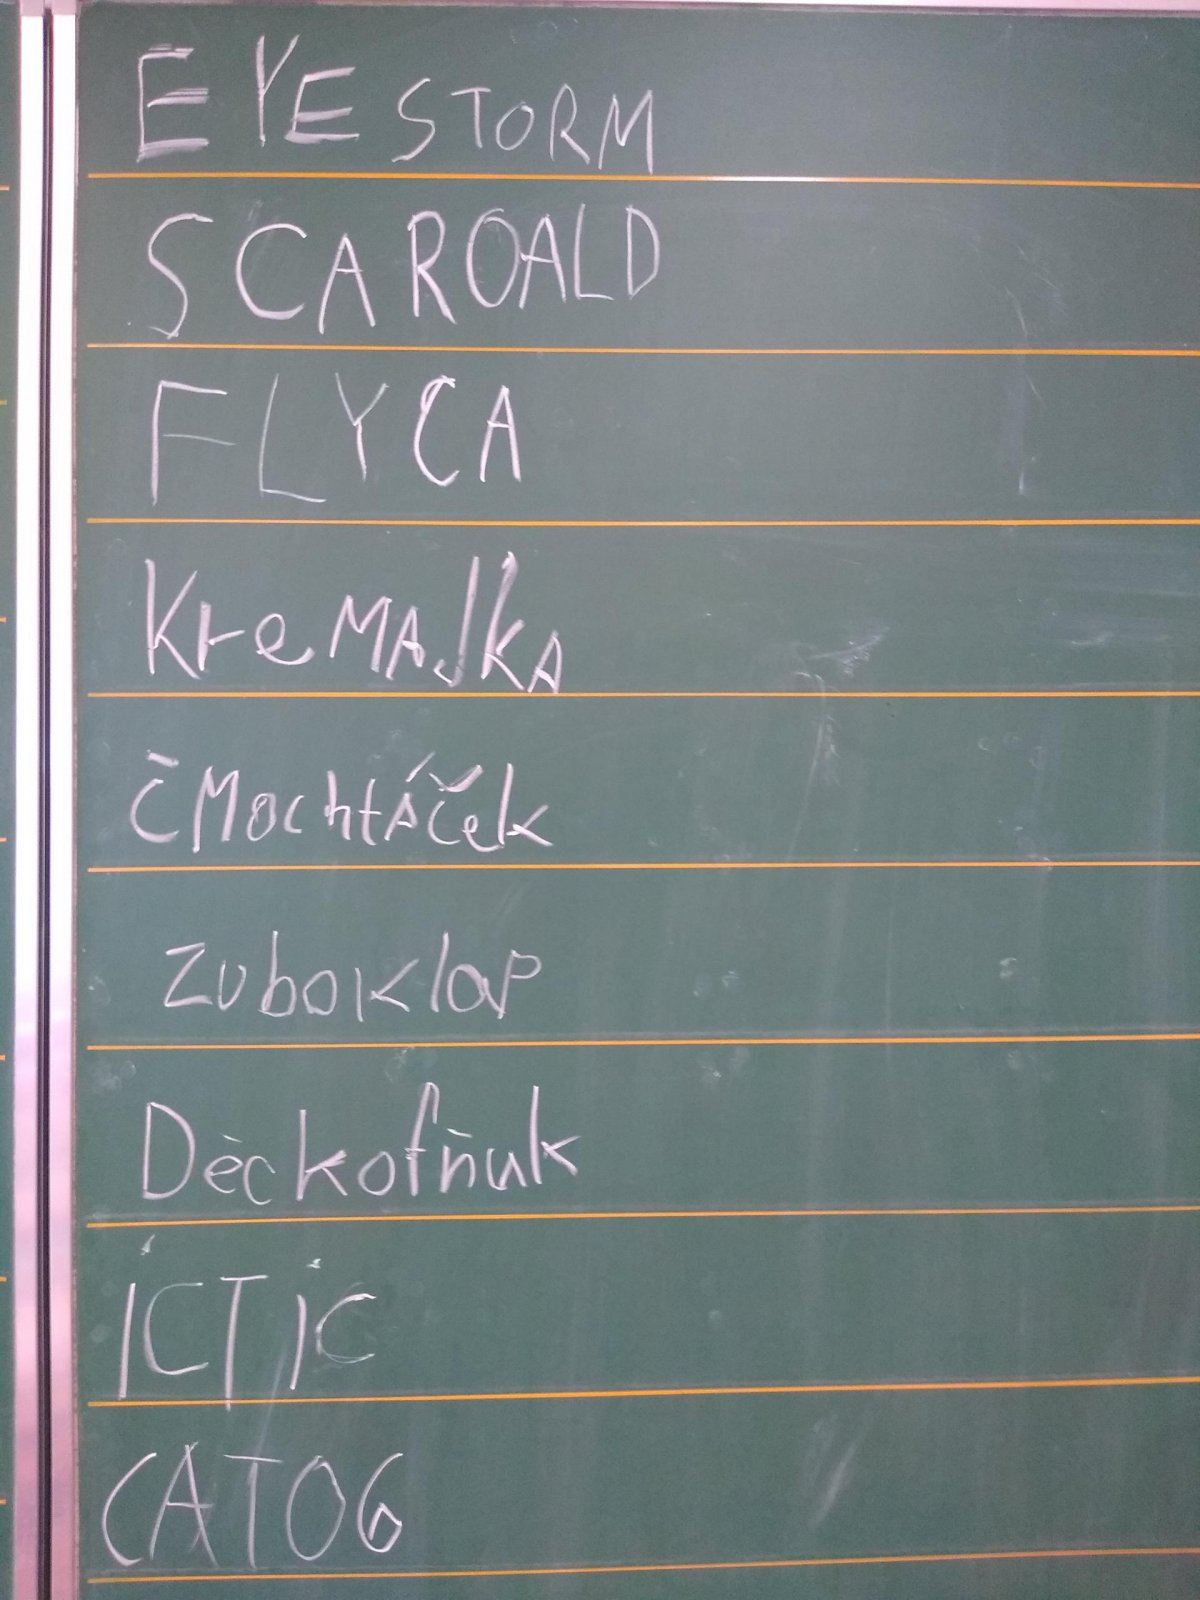 EYE STORM
SCAROALD
FLYCA
KreMAJKA
čMochtáček
zuboklap
Děckofňuk
ÍCTÍC
CATOG